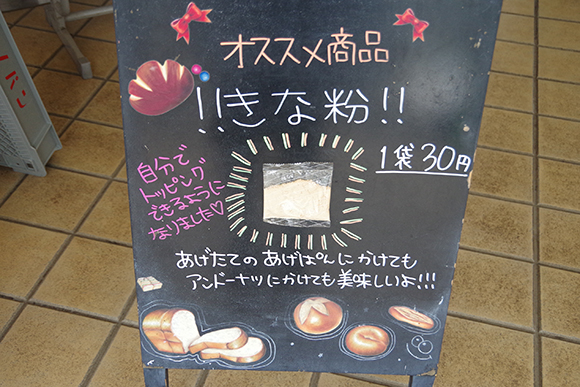 オススメ商品
!!きな粉!!
1袋30円
自分で
トッピング
できるように
なりました♡
あげたての あげぱんにかけても
アンドーナツにかけても美味しいよ!!!